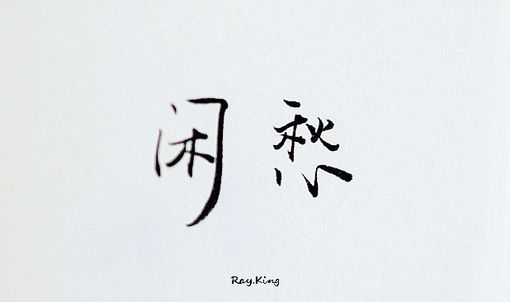 闲愁
Ray.King